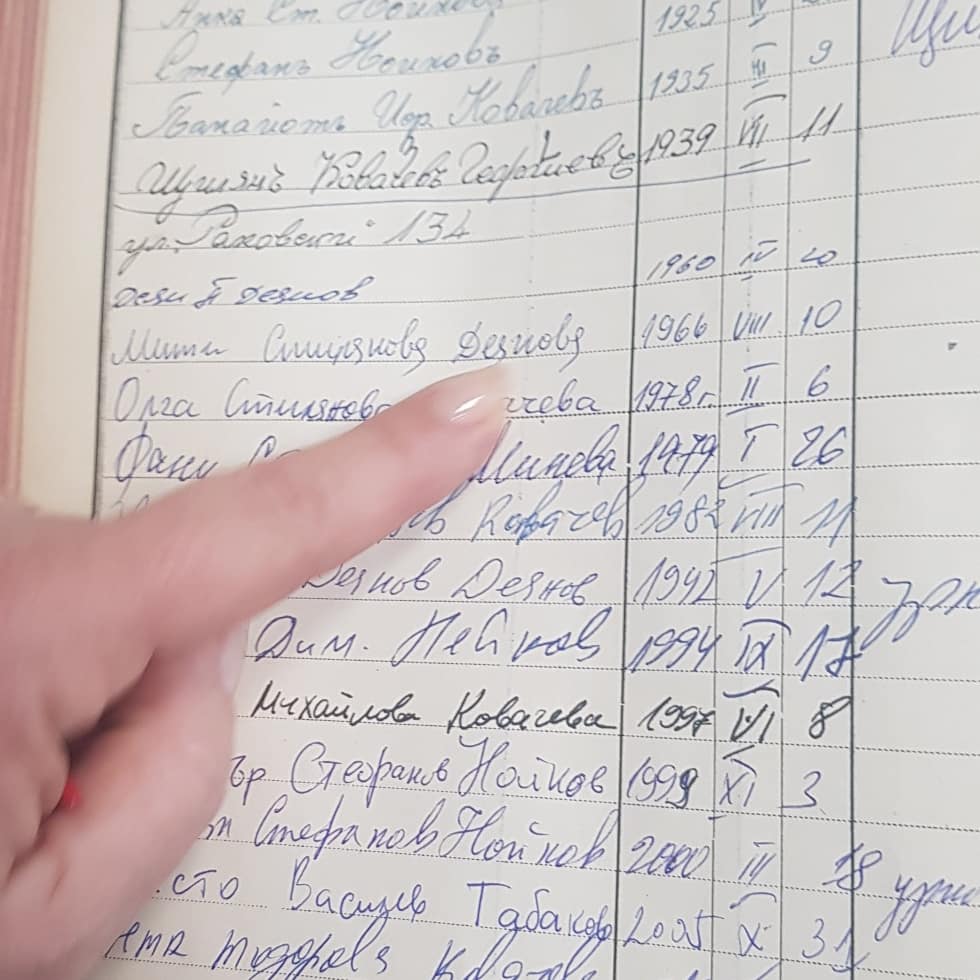 Анна Ст. Нойкова 1925 IV
Стефанъ Нойковъ 1935 III 9
Панайотъ Иор. Ковачевъ 1939 VII 11
Щилянъ Ковачевъ Георгиевъ
ул. Раковски 134
Деян П Деянов 1960 IV 20
Мити Стилянова Деянова 1966 VIII 10
Олга Стилянова 1978г. II 6
Фани Минева 1979 I 26
Ковачев 1982 VIII 11
Деянов Деянов 1992 V 12
Дим. Нейков 1994 IX 17
Михайлова Ковачева 1997 VI 8
ър Стефанов Нойков 1999 XI 3
Стефанов Нойков 2000 III 18
сто Василев Табаков 2005 X 31
Тодорова